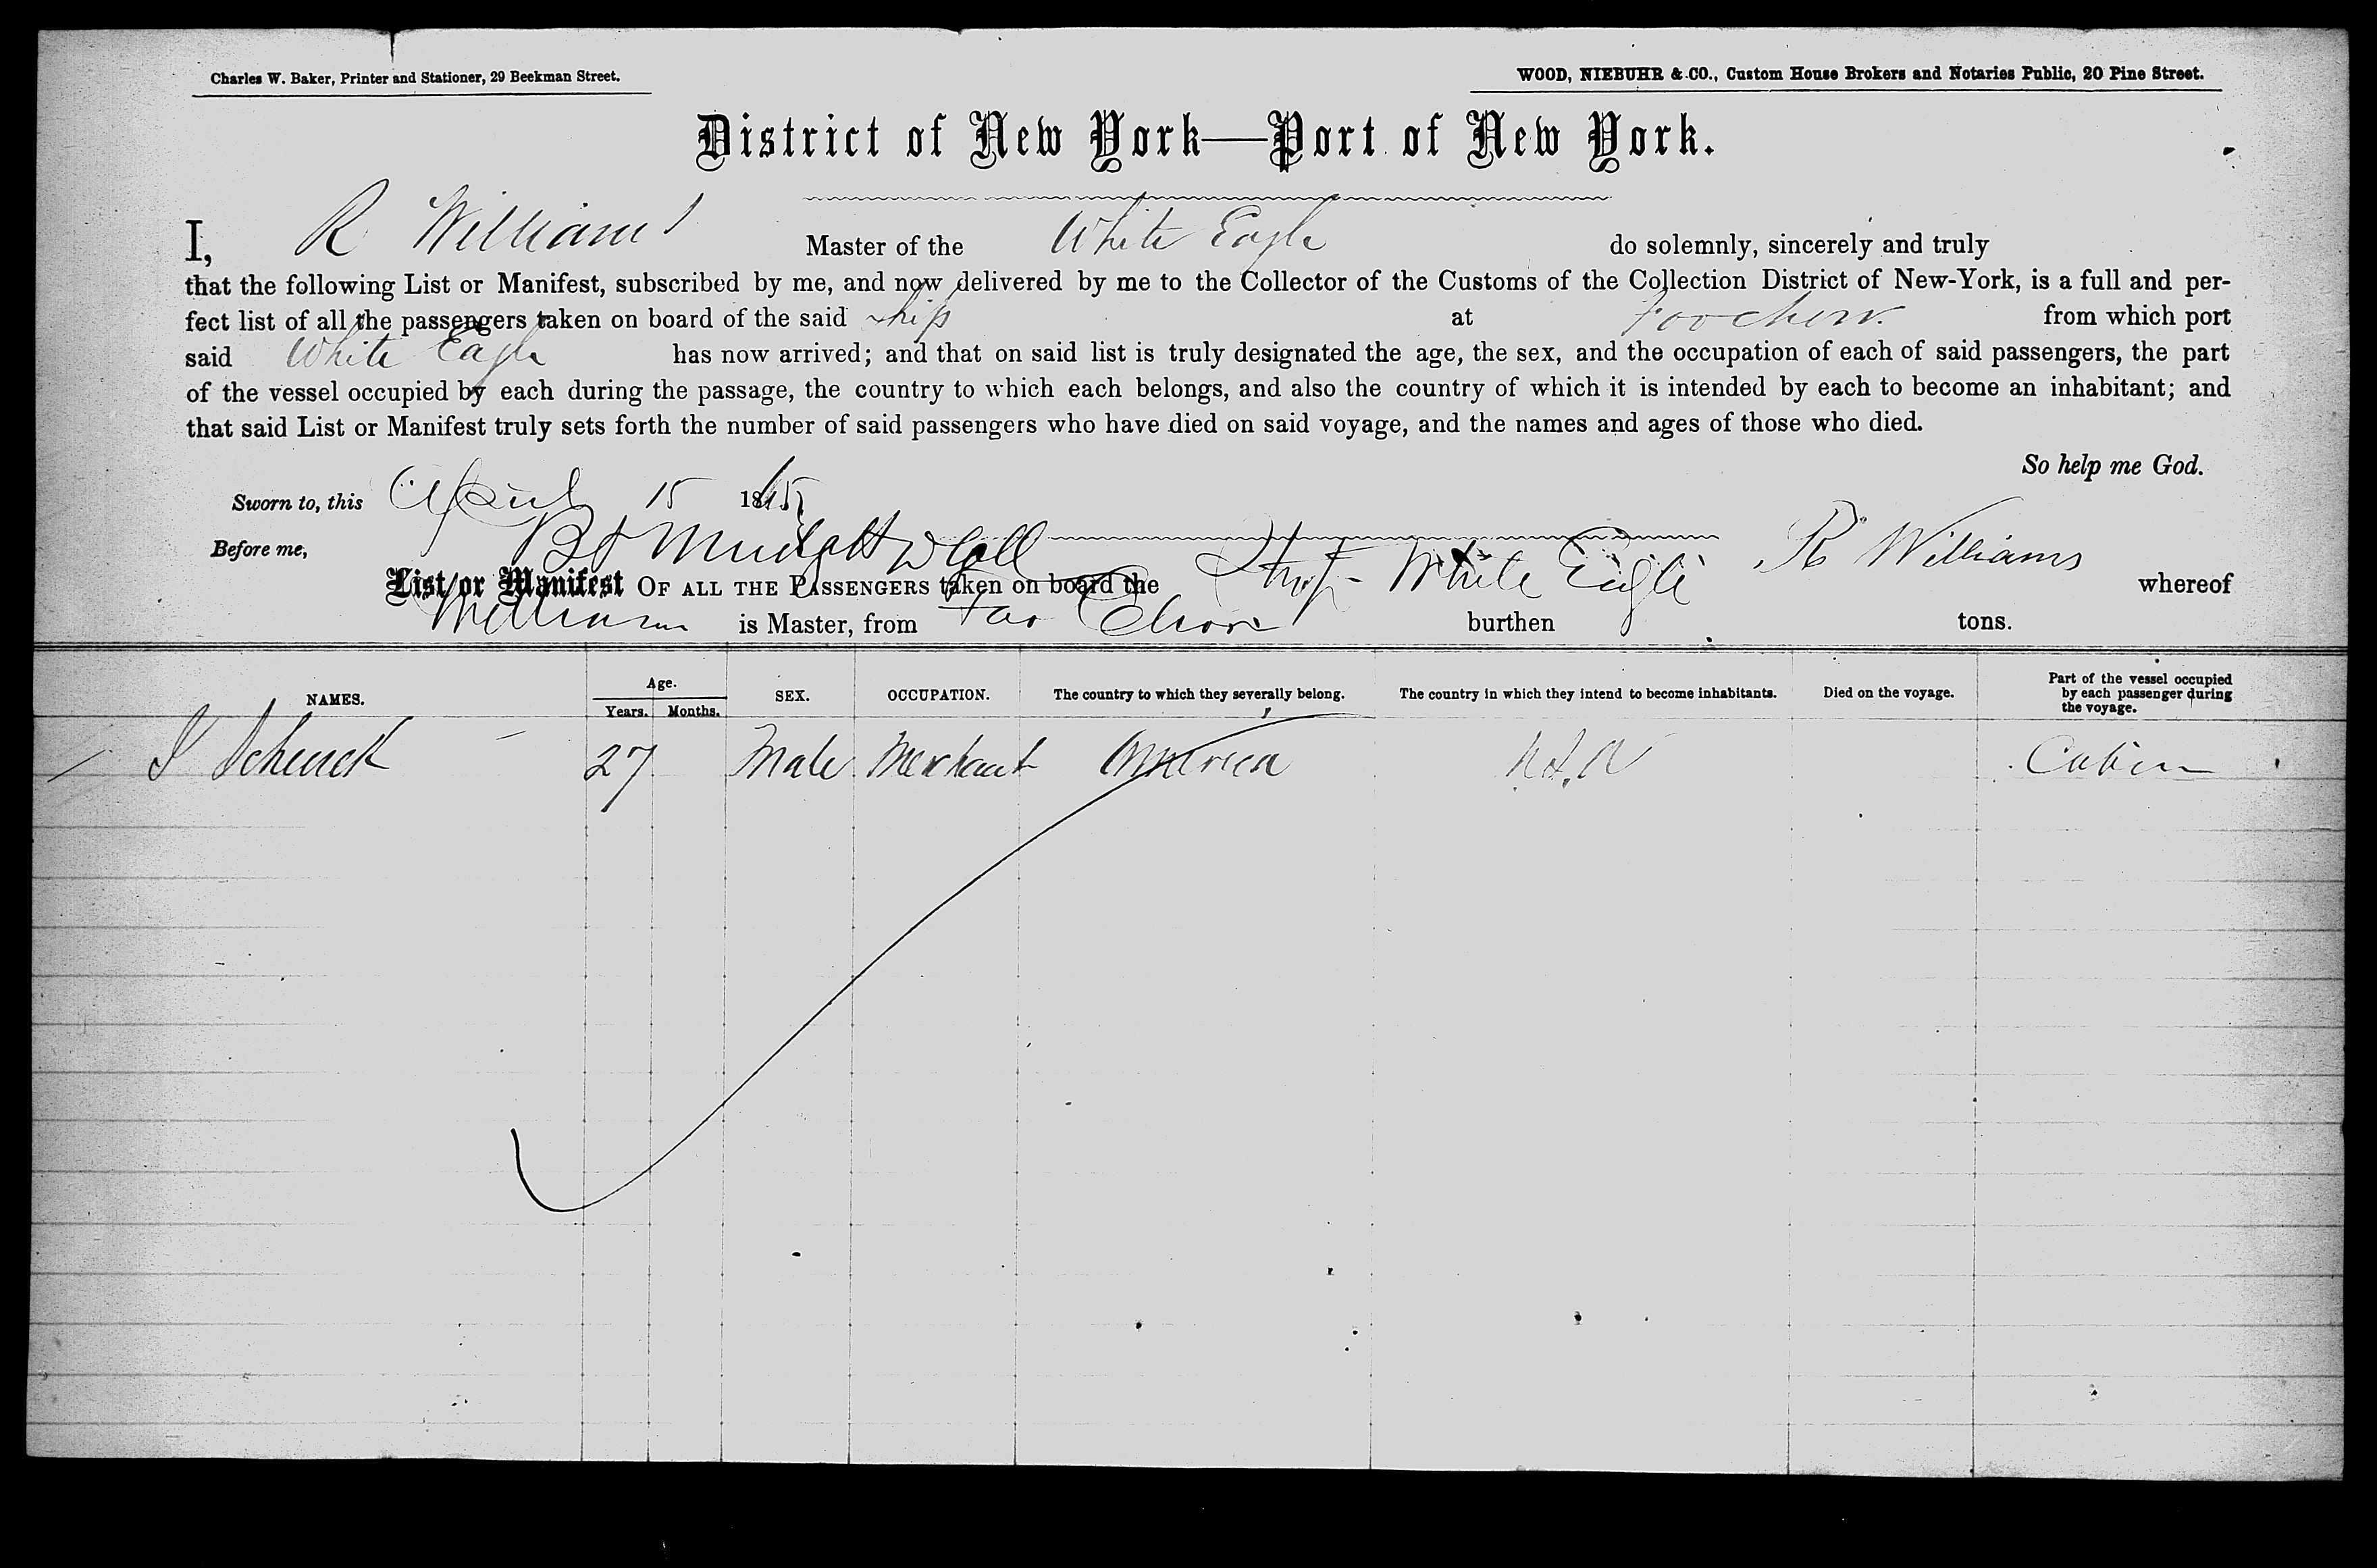 Charles W. Baker, Printer and Stationer, 29 Beekman Street.
WOOD, NIEBUHR & CO., Custom House Brokers and Notaries Public, 20 Pine Street.
District of New York—Port of New York.
I, R Williams Master of the White Eagle do solemnly, sincerely and truly
that the following List or Manifest, subscribed by me, and now delivered by me to the Collector of the Customs of the Collection District of New-York, is a full and per-
fect list of all the passengers taken on board of the said ship at Foochow. from which port
said White Eagle has now arrived; and that on said list is truly designated the age, the sex, and the occupation of each of said passengers, the part
of the vessel occupied by each during the passage, the country to which each belongs, and also the country of which it is intended by each to become an inhabitant; and
that said List or Manifest truly sets forth the number of said passengers who have died on said voyage, and the names and ages of those who died.
So help me God.
Sworn to, this April 15 1865
Before me, R Williams
List or Manifest OF ALL THE PASSENGERS taken on board the Ship White Eagle whereof
Williams is Master, from burthen tons.
NAMES. Age. Years. Months. SEX. OCCUPATION. The country to which they severally belong. The country in which they intend to become inhabitants. Died on the voyage. Part of the vessel occupied by each passenger during the voyage.
Schenck 27 Male Merchant America Cabin